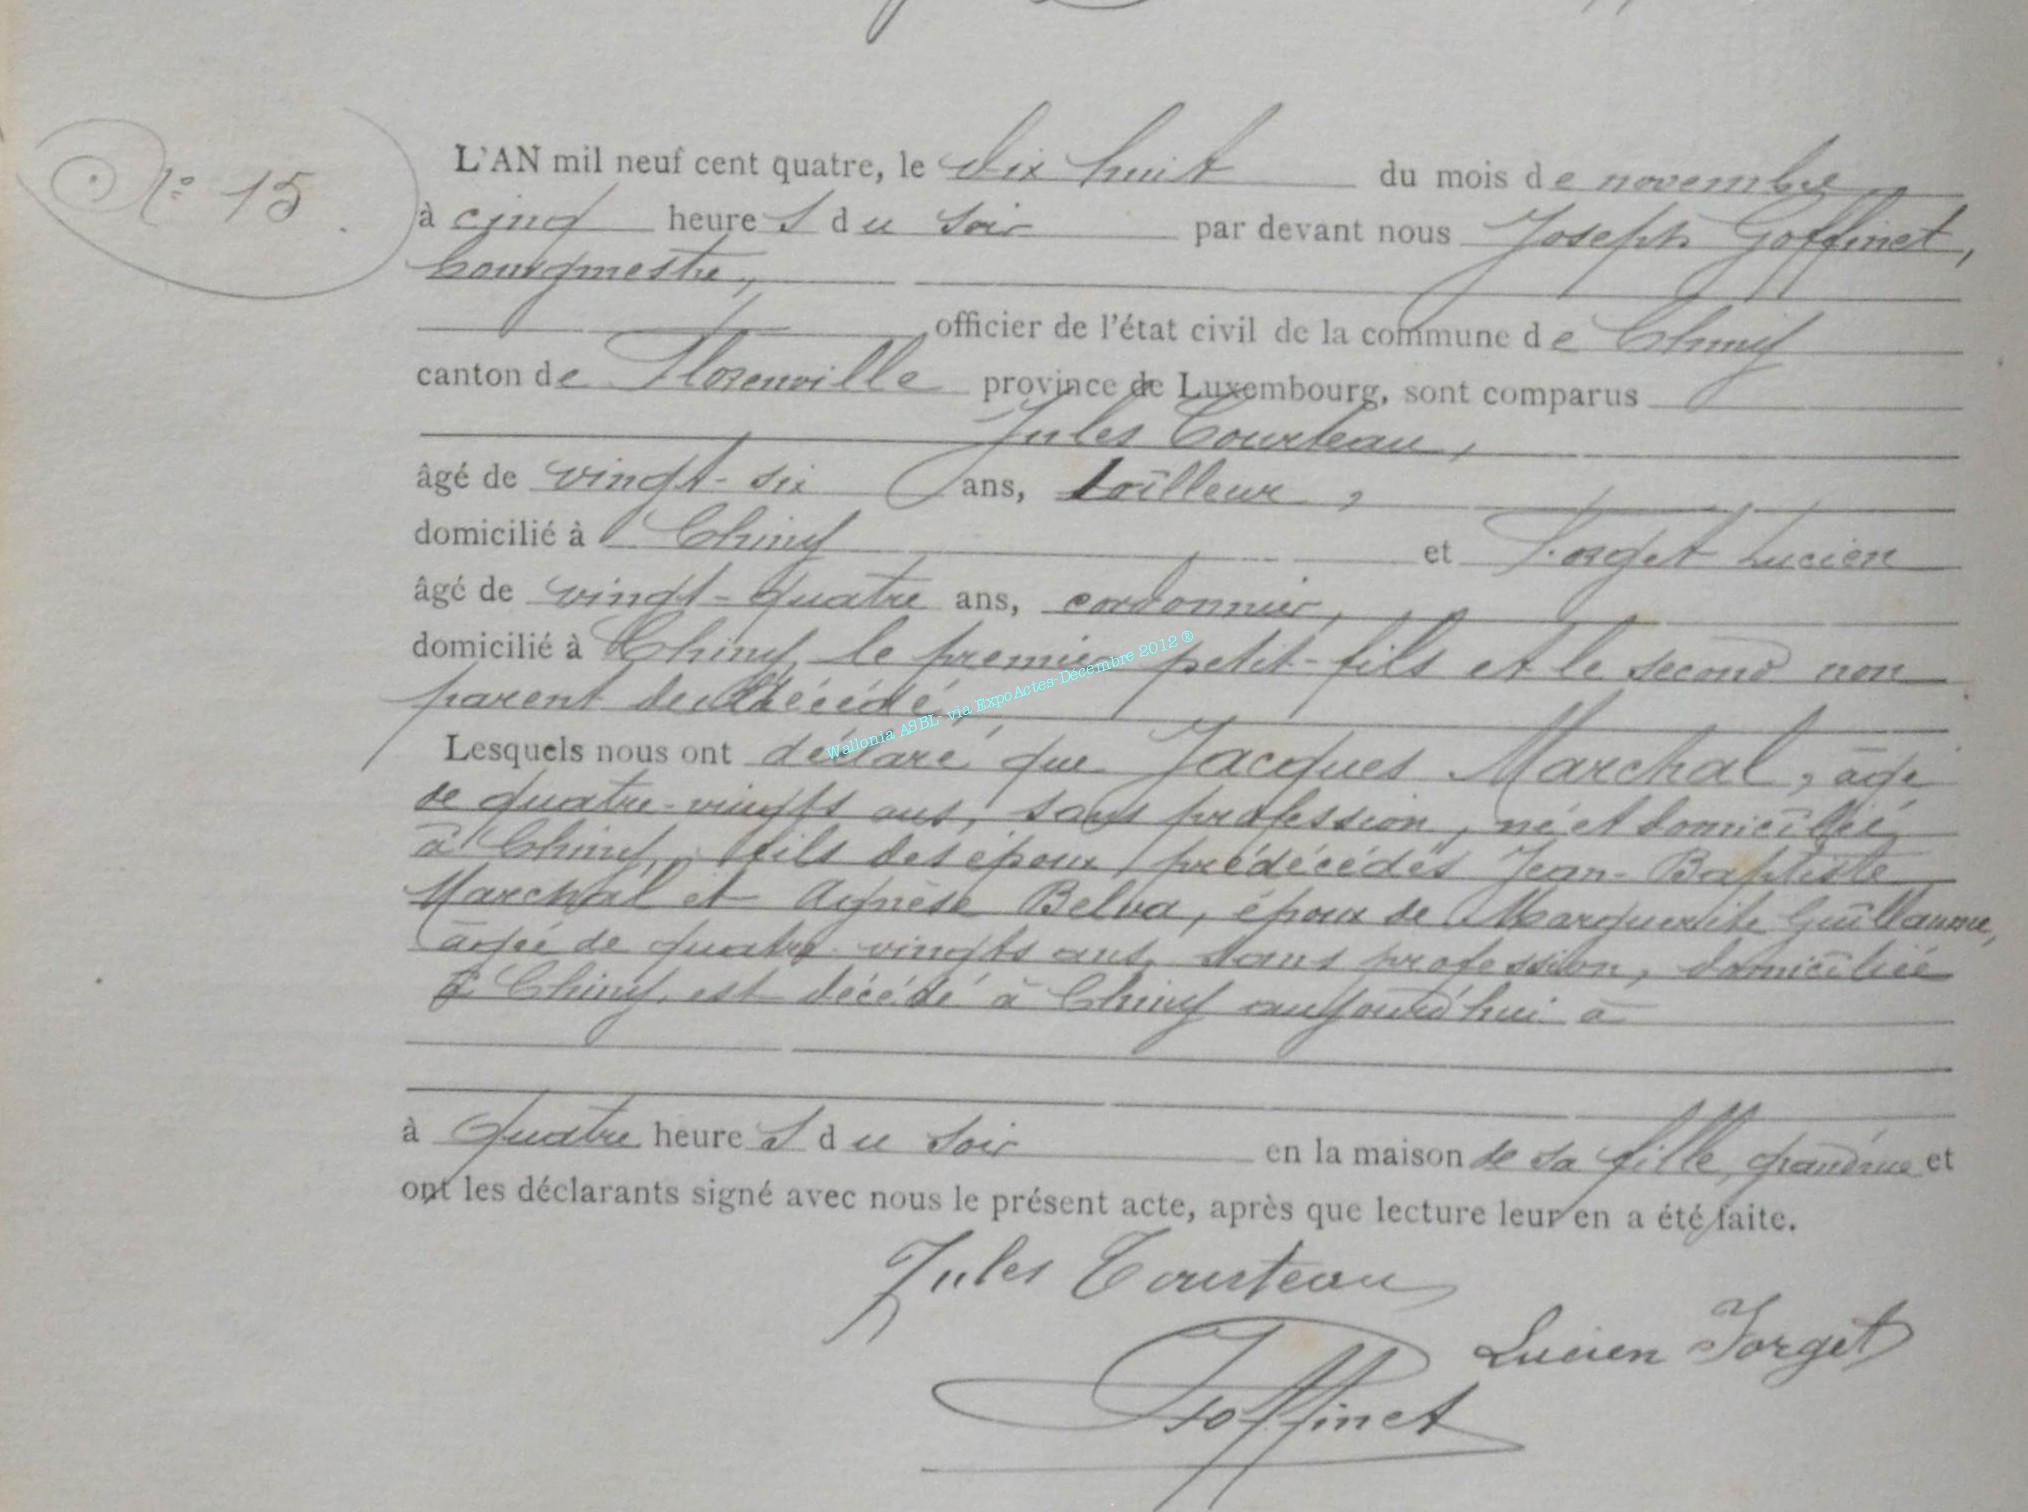 N° 15.
L'AN mil neuf cent quatre, le dix huit du mois de novembre
à cinq heures du soir par devant nous Joseph Goffinet,
bourgmestre,
officier de l'état civil de la commune de Chiny
canton de Florenville province de Luxembourg, sont comparus
Jules Tourteau,
âgé de vingt-six ans, tailleur,
domicilié à Chiny et Forget Lucien
âgé de vingt-quatre ans, cordonnier,
domicilié à Chiny, le premier petit-fils et le second non
parent du décédé,
Wallonia ASBL via ExpoActes-Décembre 2012 ®
Lesquels nous ont déclaré que Jacques Marchal, âgé
de quatre-vingts ans, sans profession, né et domicilié
à Chiny, fils des époux prédécédés Jean-Baptiste
Marchal et Agnèse Belva, époux de Marguerite Guillaume,
âgée de quatre-vingts ans, sans profession, domiciliée
à Chiny, est décédé à Chiny aujourd'hui à
à quatre heures du soir en la maison de sa fille, grand'rue et
ont les déclarants signé avec nous le présent acte, après que lecture leur en a été faite.
Jules Tourteau
Lucien Forget
Goffinet